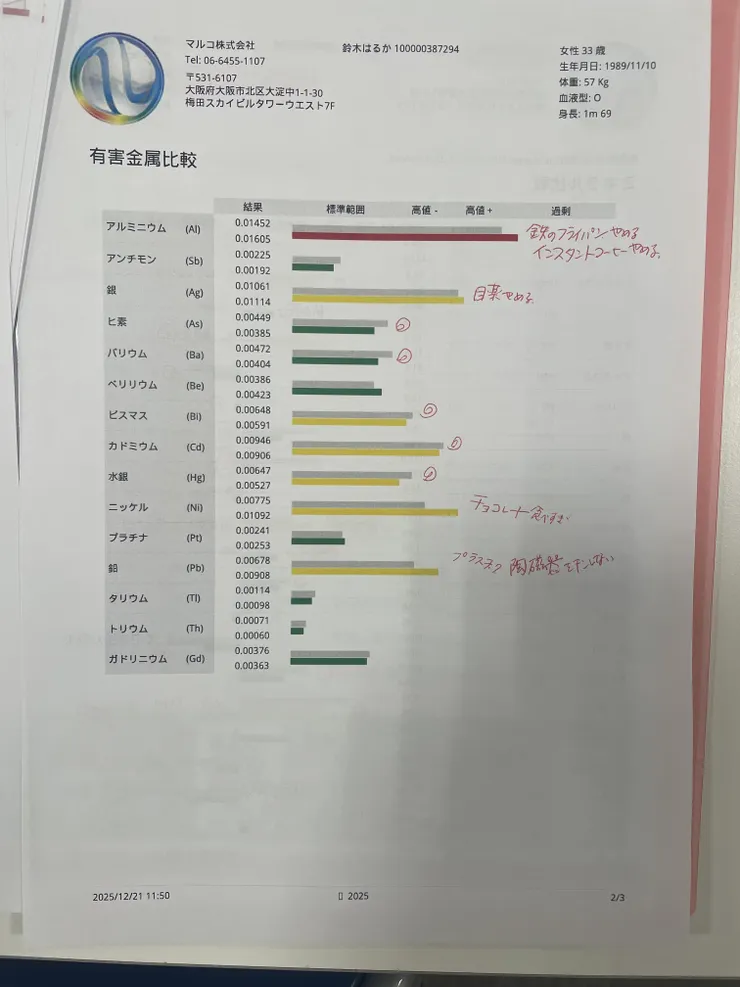 マルコ株式会社
Tel: 06-6455-1107
〒531-6107
大阪府大阪市北区大淀中1-1-30
梅田スカイビルタワーウエスト7F
鈴木はるか 100000387294
女性 33 歳
生年月日: 1989/11/10
体重: 57 Kg
血液型: O
身長: 1m 69
有害金属比較
結果 標準範囲 高値 - 高値 + 過剰
アルミニウム (Al) 0.01452 0.01605
鉄のフライパン やめる
インスタントコーヒーやめる。
アンチモン (Sb) 0.00225 0.00192
銀 (Ag) 0.01061 0.01114 目薬やめる
ヒ素 (As) 0.00449 0.00385
バリウム (Ba) 0.00472 0.00404
ベリリウム (Be) 0.00386 0.00423
ビスマス (Bi) 0.00648 0.00591
カドミウム (Cd) 0.00946 0.00906
水銀 (Hg) 0.00647 0.00527
ニッケル (Ni) 0.00775 0.01092 チョコレート食べすぎ
プラチナ (Pt) 0.00241 0.00253
鉛 (Pb) 0.00678 0.00908 陶磁器 しない
タリウム (Tl) 0.00114 0.00098
トリウム (Th) 0.00071 0.00060
ガドリニウム (Gd) 0.00376 0.00363
2025/12/21 11:50 2025 2/3